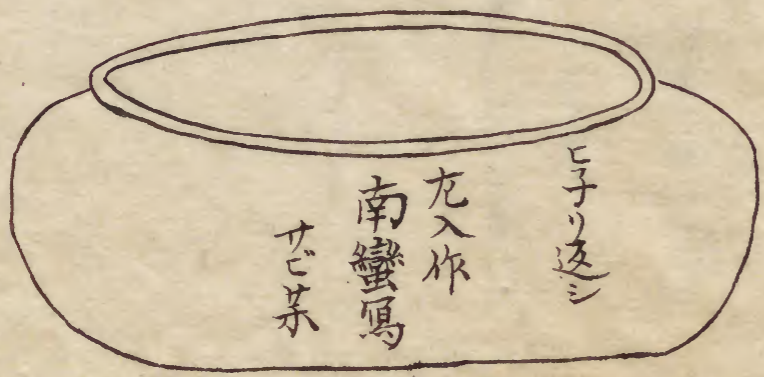 ヒ子リ返シ
左入作
南蠻寫
サビ茶